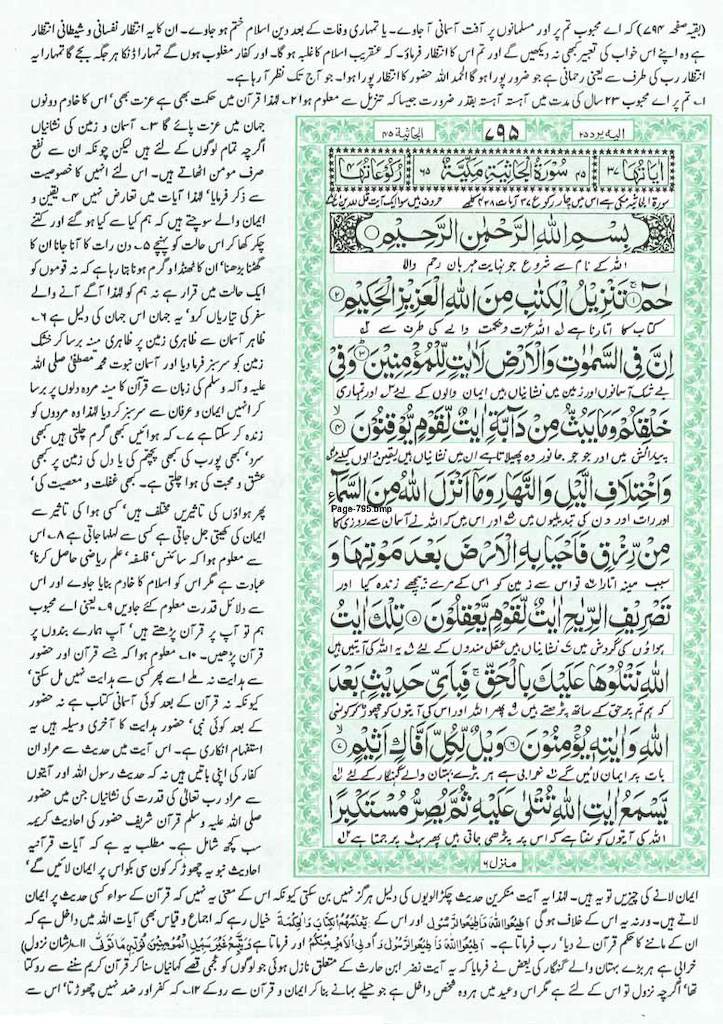 (بقیہ صفحہ ۷۹۴) کہ اے محبوب تم پر اور مسلمانوں پر آفت آسمانی آ جاوے۔ یا تمہاری وفات کے بعد دین اسلام ختم ہو جاوے۔ ان کا یہ انتظار نفسانی و شیطانی انتظار
ہے وہ اپنے اس خواب کی تعبیر کبھی نہ دیکھیں گے اور تم اس کا انتظار فرماؤ۔ کہ عنقریب اسلام کا غلبہ ہو گا۔ اور کفار مغلوب ہوں گے تمہارا ڈنکا ہر جگہ بجے گا تمہارا یہ
انتظار رب کی طرف سے یعنی رحمانی ہے جو ضرور پورا ہو گا الحمد للہ حضور کا انتظار پورا ہوا۔ جو آج تک نظر آ رہا ہے۔
۱۔ تم پر اے محبوب ۲۳ سال کی مدت میں آہستہ آہستہ بقدر ضرورت جیسا کہ تنزیل سے معلوم ہوا ۲۔ لہٰذا قرآن میں حکمت بھی ہے عزت بھی' اس کا خادم دونوں
جہان میں عزت پائے گا ۳۔ آسمان و زمین کی نشانیاں
اگرچہ تمام لوگوں کے لئے ہیں لیکن چونکہ ان سے نفع
صرف مومن اٹھاتے ہیں۔ اس لئے انہیں کا خصوصیت
سے ذکر فرمایا' لہٰذا آیات میں تعارض نہیں ۴۔ یقین و
ایمان والے سوچتے ہیں کہ ہم کیا سے کیا ہو گئے اور کتنے
چکر کھا کر اس حالت کو پہنچے ۵۔ دن رات کا آنا جانا ان کا
گھٹنا بڑھنا' ان کا ٹھنڈا و گرم ہونا بتا رہا ہے کہ نہ قوموں کو
ایک حالت میں قرار ہے نہ ہم کو لہٰذا آگے آنے والے
سفر کی تیاریاں کرو' یہ جہان اس جہان کی دلیل ہے ۶۔
ظاہر آسمان سے ظاہری زمین پر ظاہری مینہ برسا کر خشک
زمین کو سرسبز فرما دیا اور آسمان نبوت محمد مصطفیٰ صلی اللہ
علیہ و آلہ وسلم کی زبان سے قرآن کا مینہ مردہ دلوں پر برسا
کر انہیں ایمان و عرفان سے سرسبز کر دیا لہٰذا وہ مردوں کو
زندہ کر سکتا ہے ۷۔ کہ ہوائیں کبھی گرم چلتی ہیں کبھی
سرد' کبھی پورب کی کبھی پچھم کی یا دل کی زمین پر کبھی
عشق و محبت کی ہوا چلتی ہے۔ کبھی غفلت و معصیت کی'
پھر ہواؤں کی تاثیریں مختلف ہیں' کسی ہوا کی تاثیر سے
ایمان کی کھیتی جل جاتی ہے کسی سے لہلہا جاتی ہے ۸۔ اس
سے معلوم ہوا کہ سائنس' فلسفہ' علم ریاضی حاصل کرنا'
عبادت ہے مگر اس کو اسلام کا خادم بنایا جاوے اور اس
سے دلائل قدرت معلوم کئے جاویں ۹۔ یعنی اے محبوب
ہم تو آپ پر قرآن پڑھتے ہیں' آپ ہمارے بندوں پر
قرآن پڑھیں۔ ۱۰۔ معلوم ہوا کہ جسے قرآن اور حضور
سے ہدایت نہ ملے اسے پھر کسی سے ہدایت نہیں مل سکتی'
کیونکہ نہ قرآن کے بعد کوئی آسمانی کتاب ہے نہ حضور
کے بعد کوئی نبی' حضور ہدایت کا آخری وسیلہ ہیں یہ
استفہام انکاری ہے۔ اس آیت میں حدیث سے مراد ان
کفار کی اپنی باتیں ہیں نہ کہ حدیث رسول اللہ اور آیتوں
سے مراد رب تعالیٰ کی قدرت کی نشانیاں جن میں حضور
صلی اللہ علیہ وسلم قرآن شریف حضور کی احادیث کریمہ
سب کچھ شامل ہے۔ مطلب یہ ہے کہ آیات قرآنیہ
احادیث نبویہ چھوڑ کر کون سی بکواس پر ایمان لائیں گے'
الیہ یرد ۲۵
۷۹۵
الجاثیۃ ۴۵
اٰیاتہا ۳۷
۴۵ سُوْرَۃُ الْجَاثِیَۃِ مَکِّیَّۃٌ ۶۵
رُکُوْعَاتُہَا ۴
بِسْمِ اللّٰہِ الرَّحْمٰنِ الرَّحِیْمِ
اللہ کے نام سے شروع جو نہایت مہربان رحم والا
حٰمٓ ۚ﴿۱﴾ تَنْزِیْلُ الْکِتٰبِ مِنَ اللّٰہِ الْعَزِیْزِ الْحَکِیْمِ ﴿۲﴾
کتاب کا اتارنا ہے ۱ اللہ عزت و حکمت والے کی طرف سے ۲
اِنَّ فِی السَّمٰوٰتِ وَالْاَرْضِ لَاٰیٰتٍ لِّلْمُؤْمِنِیْنَ ﴿۳﴾ وَفِیْ
بے شک آسمانوں اور زمین میں نشانیاں ہیں ایمان والوں کے لئے ۳ اور تمہاری
خَلْقِکُمْ وَمَا یَبُثُّ مِنْ دَآبَّۃٍ اٰیٰتٌ لِّقَوْمٍ یُّوْقِنُوْنَ ﴿۴﴾
پیدائش میں اور جو جو جانور وہ پھیلاتا ہے ان میں نشانیاں ہیں یقین والوں کیلئے ۴
وَاخْتِلَافِ الَّیْلِ وَالنَّہَارِ وَمَاۤ اَنْزَلَ اللّٰہُ مِنَ السَّمَآءِ
Page-795.bmp
اور رات اور دن کی تبدیلیوں میں ۵ اور اس میں کہ اللہ نے آسمان سے روزی کا
مِنْ رِّزْقٍ فَاَحْیَا بِہِ الْاَرْضَ بَعْدَ مَوْتِہَا وَ
سبب مینہ اتارا تو اس سے زمین کو اس کے مرے پیچھے زندہ کیا اور
تَصْرِیْفِ الرِّیٰحِ اٰیٰتٌ لِّقَوْمٍ یَّعْقِلُوْنَ ﴿۵﴾ تِلْکَ اٰیٰتُ
ہواؤں کی گردش میں ۷ نشانیاں ہیں عقلمندوں کے لئے ۸ یہ اللہ کی آیتیں ہیں
اللّٰہِ نَتْلُوْہَا عَلَیْکَ بِالْحَقِّ ۚ فَبِاَیِّ حَدِیْثٍۭ بَعْدَ
کہ ہم تم پر حق کے ساتھ پڑھتے ہیں ۹ پھر اللہ اور اس کی آیتوں کو چھوڑ کر کونسی
اللّٰہِ وَاٰیٰتِہٖ یُؤْمِنُوْنَ ﴿۶﴾ وَیْلٌ لِّکُلِّ اَفَّاکٍ اَثِیْمٍ ﴿۷﴾
بات پر ایمان لائیں گے ۱۰ خرابی ہے ہر بڑے بہتان والے گنہگار کے لئے ۱۱
یَّسْمَعُ اٰیٰتِ اللّٰہِ تُتْلٰی عَلَیْہِ ثُمَّ یُصِرُّ مُسْتَکْبِرًا
اللہ کی آیتوں کو سنتا ہے کہ اس پر پڑھی جاتی ہیں پھر ہٹ پر جمتا ہے ۱۲
منزل ۶
ایمان لانے کی چیزیں تو یہ ہیں۔ لہٰذا یہ آیت منکرین حدیث چکڑالویوں کی دلیل ہرگز نہیں بن سکتی کیونکہ اس کے معنی یہ نہیں کہ قرآن کے سواء کسی حدیث پر ایمان
لاتے ہیں۔ ورنہ یہ اس کے خلاف ہو گی اَطِیْعُوا اللّٰہَ وَاَطِیْعُوا الرَّسُوْلَ اور اس کے یُعَلِّمُہُمُ الْکِتٰبَ وَالْحِکْمَۃَ خیال رہے کہ اجماع و قیاس بھی آیات اللہ میں داخل ہے کہ
ان کے ماننے کا حکم قرآن نے دیا' رب فرماتا ہے۔ اَطِیْعُوا اللّٰہَ وَاَطِیْعُوا الرَّسُوْلَ وَاُولِی الْاَمْرِ مِنْکُمْ اور فرماتا ہے وَیَتَّبِعْ غَیْرَ سَبِیْلِ الْمُؤْمِنِیْنَ نُوَلِّہٖ مَا تَوَلّٰی ۱۱۔ (شان نزول)
خرابی ہے ہر بڑے بہتان والے گنہگار کی بعض نے فرمایا کہ یہ آیت نضر ابن حارث کے متعلق نازل ہوئی جو لوگوں کو عجمی قصے کہانیاں سنا کر قرآن کریم سننے سے روکتا
تھا' اگرچہ نزول تو اس کے لئے ہے مگر اس وعید میں ہر وہ شخص داخل ہے جو حیلے بہانے بنا کر ایمان و قرآن سے روکے ۱۲۔ کہ کفر اور ضد نہیں چھوڑتا' اس سے